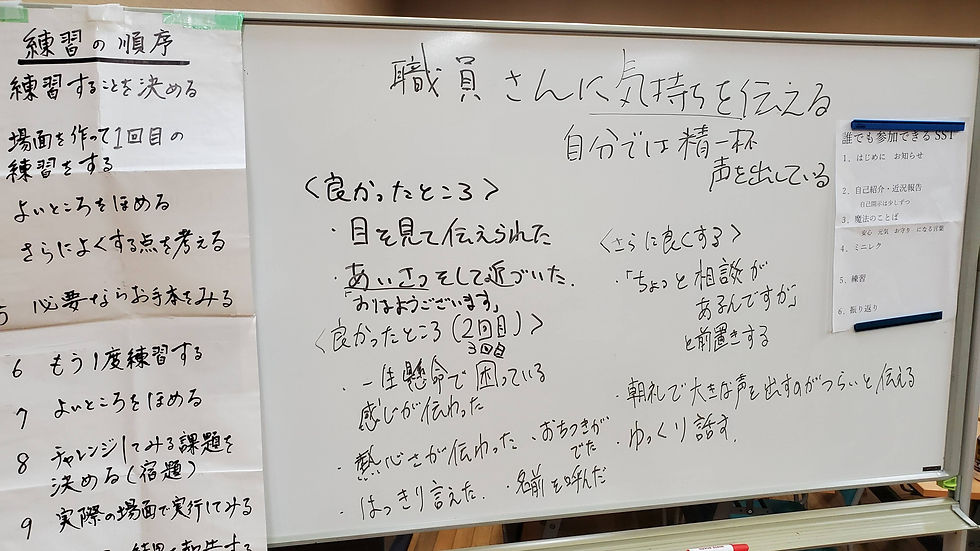 練習の順序
練習することを決める
場面を作って1回目の
練習をする
よいところをほめる
さらによくする点を考える
5 必要ならお手本をみる
6 もう1度練習する
7 よいところをほめる
8 チャレンジしてみる課題を
決める(宿題)
9 実際の場面で実行してみる
職員さんに気持ちを伝える
自分では精一杯
声を出している
<良かったところ>
・目を見て伝えられた
・あいさつそして近づいた.
「おはようございます」
<良かったところ(2回目)>
3回目
・一生懸命で困っている
感じが伝わった
・熱心さが伝わった
・おちつきが
でた
・はっきり言えた.
・名前を呼んだ
<さらに良くする>
・「ちょっと相談が
あるんですが」
と前置きする
・朝礼で大きな声を出すのがつらいと伝える
・ゆっくり話す.
誰でも参加できるSST
1、はじめに お知らせ
2、自己紹介・近況報告
自己開示は少しずつ
3、魔法のことば
安心 元気 お守り になる言葉
4、ミニレク
5、練習
6、振り返り